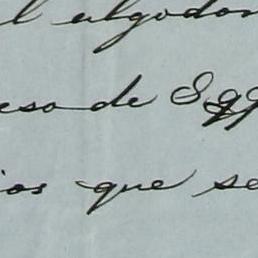 l algodon
eso de Egi
ios que se